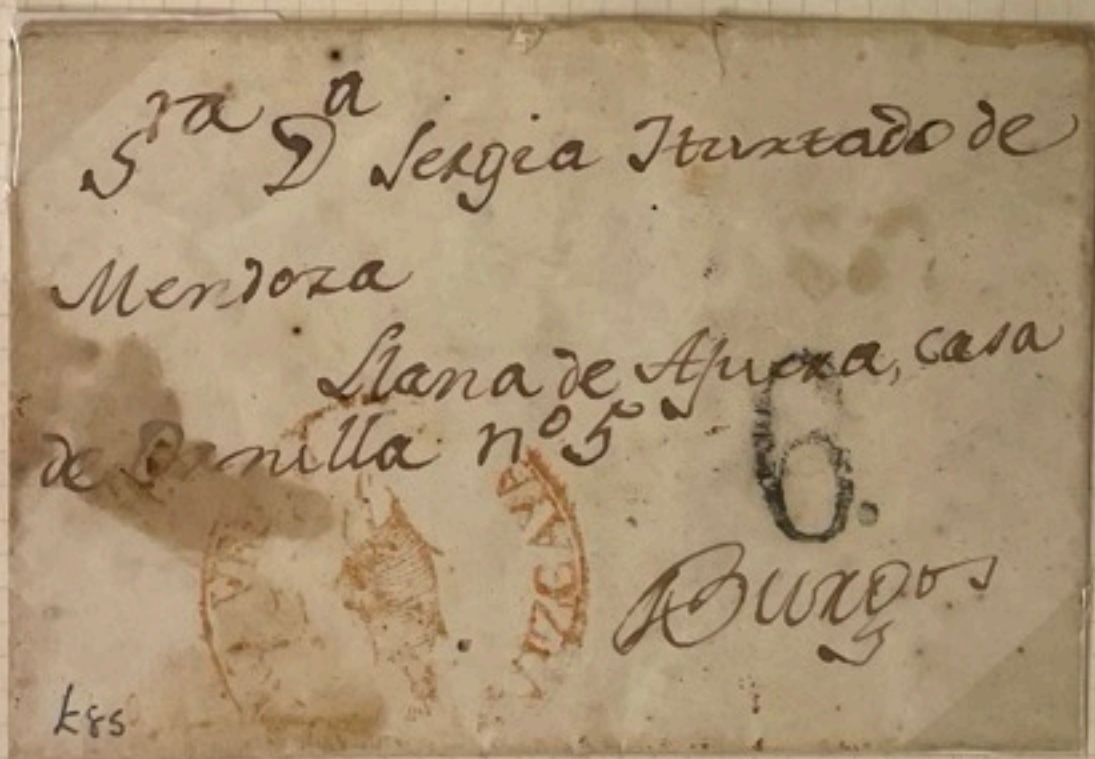 Sra Da Sergia Hurtado de
Mendoza
Llana de Afuera, casa
de Bonilla nº 5
6.
Burgos
VIZCAYA
k85